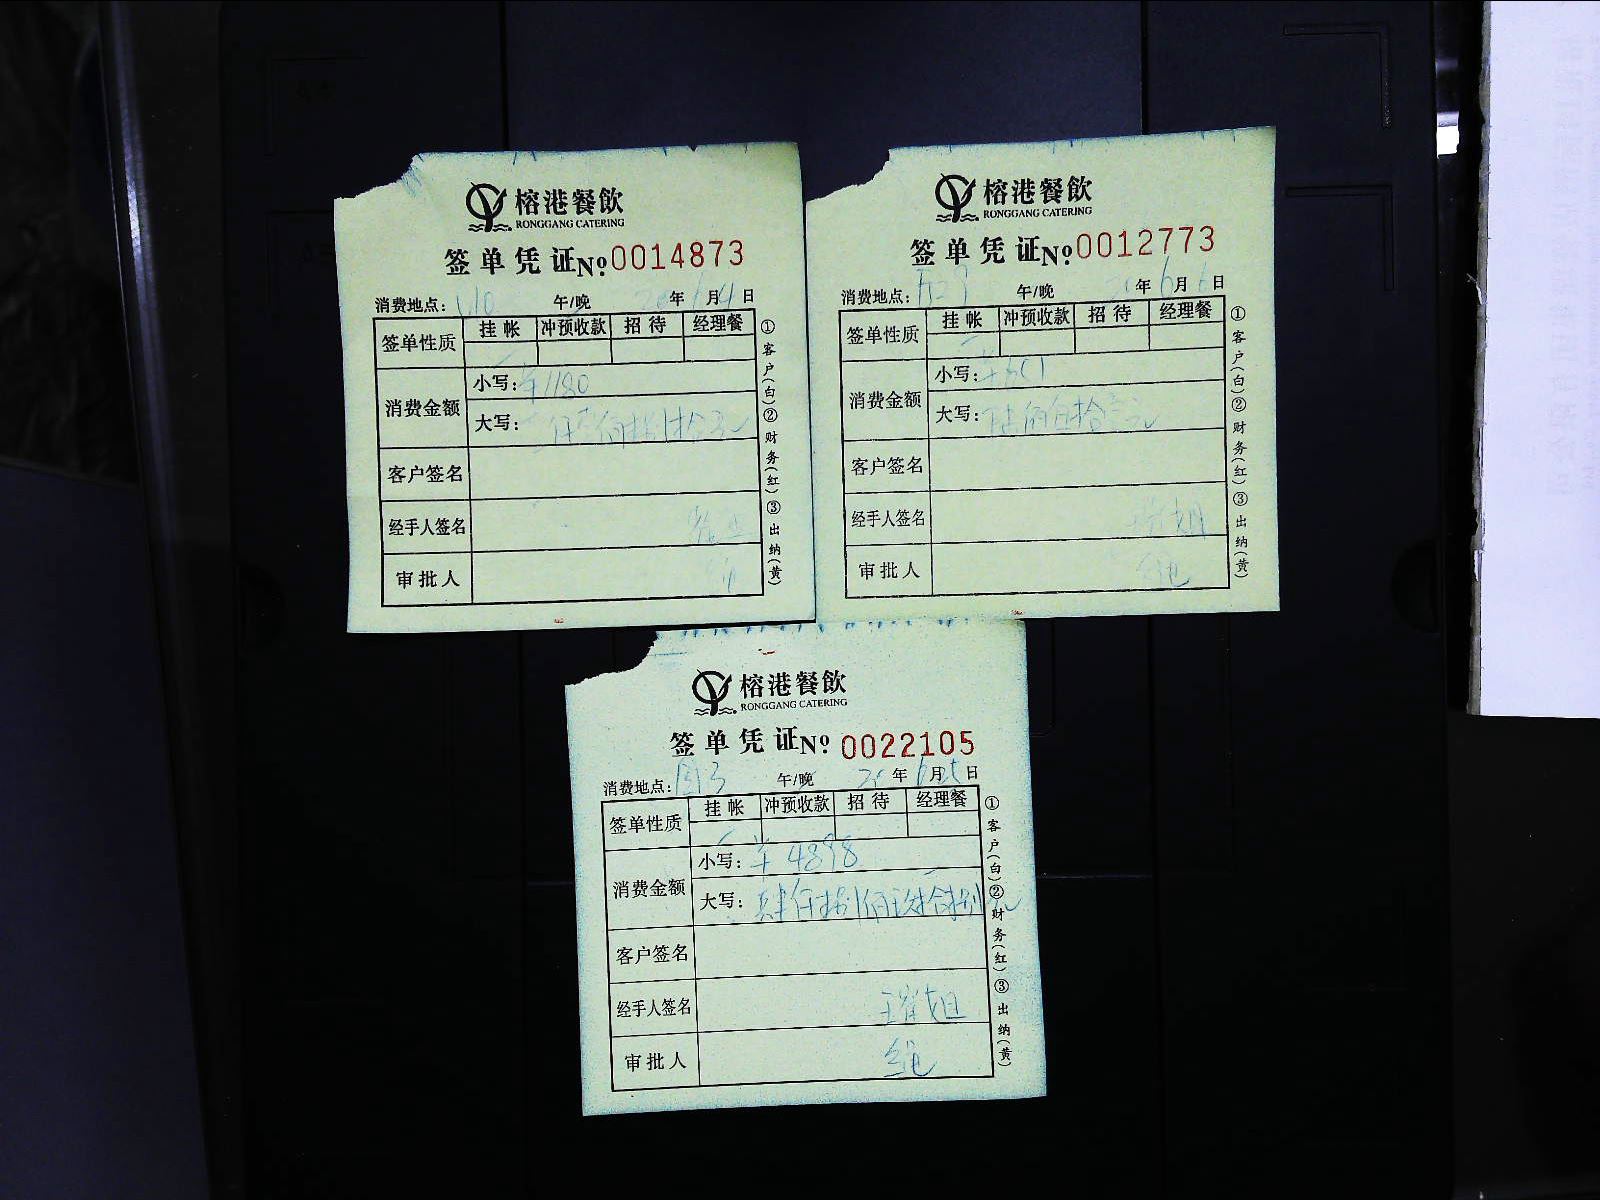 榕港餐飲
RONGGANG CATERING
签单凭证№0014873
消费地点: 午/晚 年 月 4 日
签单性质 挂帐 冲预收款 招待 经理餐
消费金额 小写:¥1180
大写: 仟壹佰捌拾元
客户签名
经手人签名
审批人
①客户(白)②财务(红)③出纳(黄)
榕港餐飲
RONGGANG CATERING
签单凭证№0012773
消费地点: 午/晚 年6月 日
签单性质 挂帐 冲预收款 招待 经理餐
消费金额 小写:¥
大写: 佰 拾 元
客户签名
经手人签名 姐
审批人
①客户(白)②财务(红)③出纳(黄)
榕港餐飲
RONGGANG CATERING
签单凭证№0022105
消费地点: 午/晚 年6月 日
签单性质 挂帐 冲预收款 招待 经理餐
消费金额 小写:¥4898
大写:肆仟捌佰玖拾捌元
客户签名
经手人签名 姐
审批人
①客户(白)②财务(红)③出纳(黄)